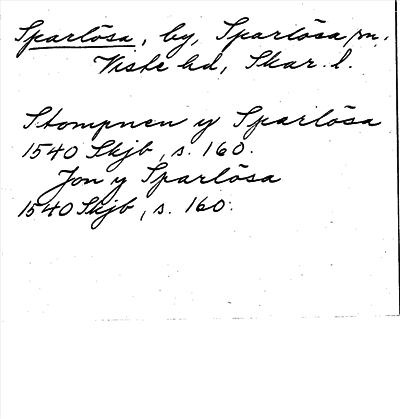 Sparlösa, by, Sparlösa sn.
Viste hd, Skar. l.
Stompnen y Sparlösa
1540 Skjb, s. 160.
Jon y Sparlösa
1540 Skjb, s. 160.